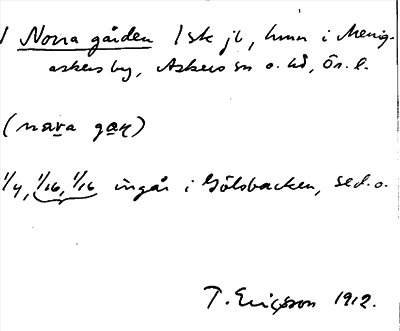 1 Norra gården 1 sk jb, hmn i Menig-
askers by, Askers sn o. hd, Ör. l.
(nara gaṛ)
1/4, 1/16, 1/16 ingår i Gölsbacken, sed. o.
T. Ericsson 1912.